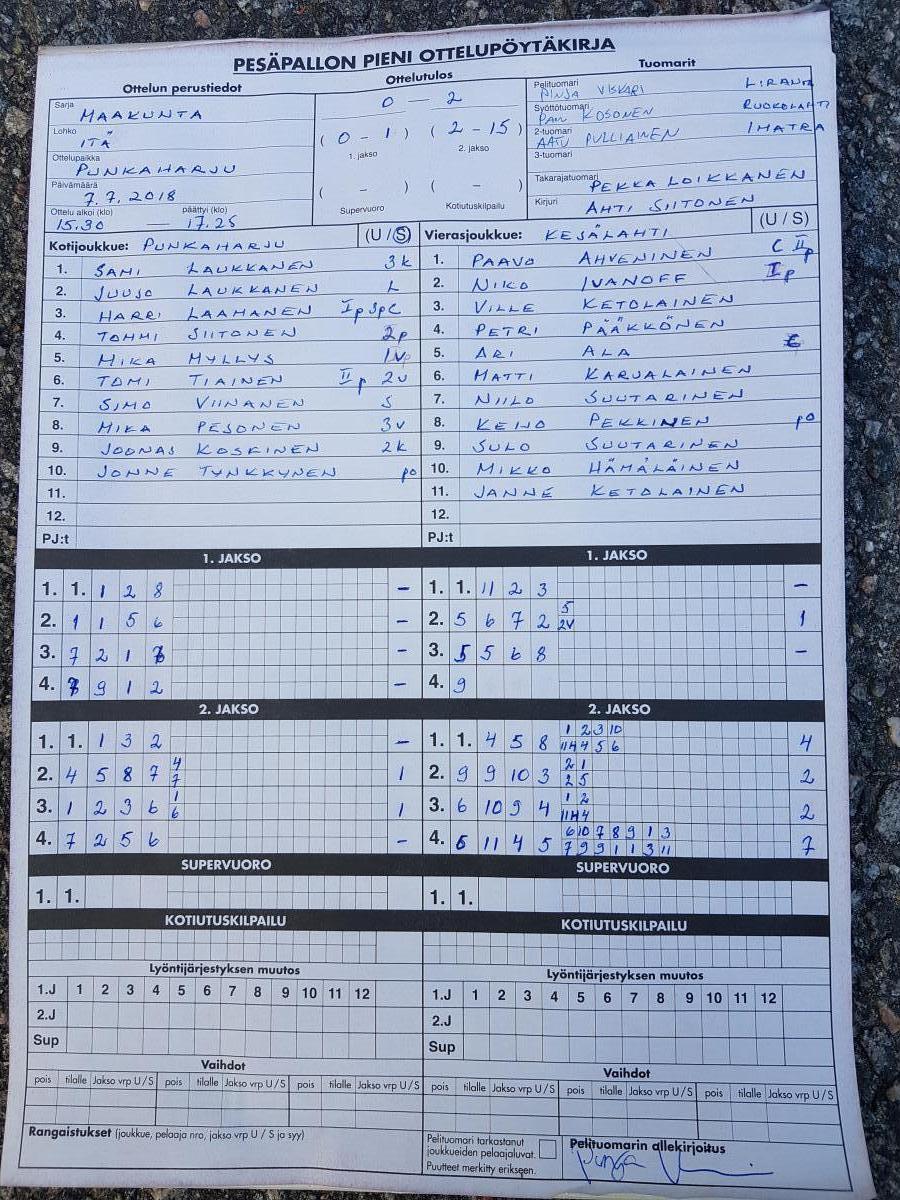 PESÄPALLON PIENI OTTELUPÖYTÄKIRJA
Ottelun perustiedot
Ottelutulos
Tuomarit
Sarja MAAKUNTA
Lohko ITÄ
Ottelupaikka PUNKAHARJU
Päivämäärä 7.7.2018
Ottelu alkoi (klo) päättyi (klo)
15.30 — 17.25
0 – 2
(0 – 1) (2 – 15)
1. jakso 2. jakso
( – ) ( – )
Supervuoro Kotiutuskilpailu
Pelituomari PINJA VISKARI
Syöttötuomari KOSONEN RUOKOLAHTI
2-tuomari AATU PULLIAINEN IMATRA
3-tuomari
Takarajatuomari PEKKA LOIKKANEN
Kirjuri AHTI SIITONEN
Kotijoukkue: PUNKAHARJU (U / S)
1. SAMI LAUKKANEN 3k
2. JUUSO LAUKKANEN L
3. HARRI LAAMANEN Ip Sp C
4. TOMMI SIITONEN 2p
5. MIKA MYLLYS 1v
6. TOMI TIAINEN IIp 2v
7. SIMO VIINANEN S
8. MIKA PESONEN 3v
9. JOONAS KOSKINEN 2k
10. JONNE TYNKKYNEN po
11.
12.
PJ:t
Vierasjoukkue: KESÄLAHTI (U / S)
1. PAAVO AHVENINEN C IIp
2. NIKO IVANOFF Ip
3. VILLE KETOLAINEN
4. PETRI PÄÄKKÖNEN
5. ARI ALA
6. MATTI KARJALAINEN
7. NIILO SUUTARINEN
8. KEIJO PEKKINEN po
9. SULO SUUTARINEN
10. MIKKO HÄMÄLÄINEN
11. JANNE KETOLAINEN
12.
PJ:t
1. JAKSO
1. 1. 1 2 8 –
2. 1 1 5 6 –
3. 7 2 1 –
4. 9 1 2 –
1. JAKSO
1. 1. 11 2 3 –
2. 5 6 7 2 5 1
2V
3. 5 5 6 8 –
4. 9
2. JAKSO
1. 1. 1 3 2 –
2. 4 5 8 7 4 1
7
3. 1 2 3 6 1 1
6
4. 7 2 5 6 –
2. JAKSO
1. 1. 4 5 8 1 2 3 10 4
4 5 6
2. 9 9 10 3 2 1 2
2 5
3. 6 10 9 4 1 2 2
4. 6 11 4 5 6 10 7 8 9 1 3 7
7 9 9 1 1 3 11
SUPERVUORO
1. 1.
SUPERVUORO
1. 1.
KOTIUTUSKILPAILU
KOTIUTUSKILPAILU
Lyöntijärjestyksen muutos
1.J 1 2 3 4 5 6 7 8 9 10 11 12
2.J
Sup
Lyöntijärjestyksen muutos
1.J 1 2 3 4 5 6 7 8 9 10 11 12
2.J
Sup
Vaihdot
pois tilalle Jakso vrp U / S pois tilalle Jakso vrp U / S pois tilalle Jakso vrp U / S
Vaihdot
pois tilalle Jakso vrp U / S pois tilalle Jakso vrp U / S pois tilalle Jakso vrp U / S
Rangaistukset (joukkue, pelaaja nro, jakso vrp U / S ja syy)
Pelituomari tarkastanut
joukkueiden pelaajaluvat.
Puutteet merkitty erikseen.
Pelituomarin allekirjoitus